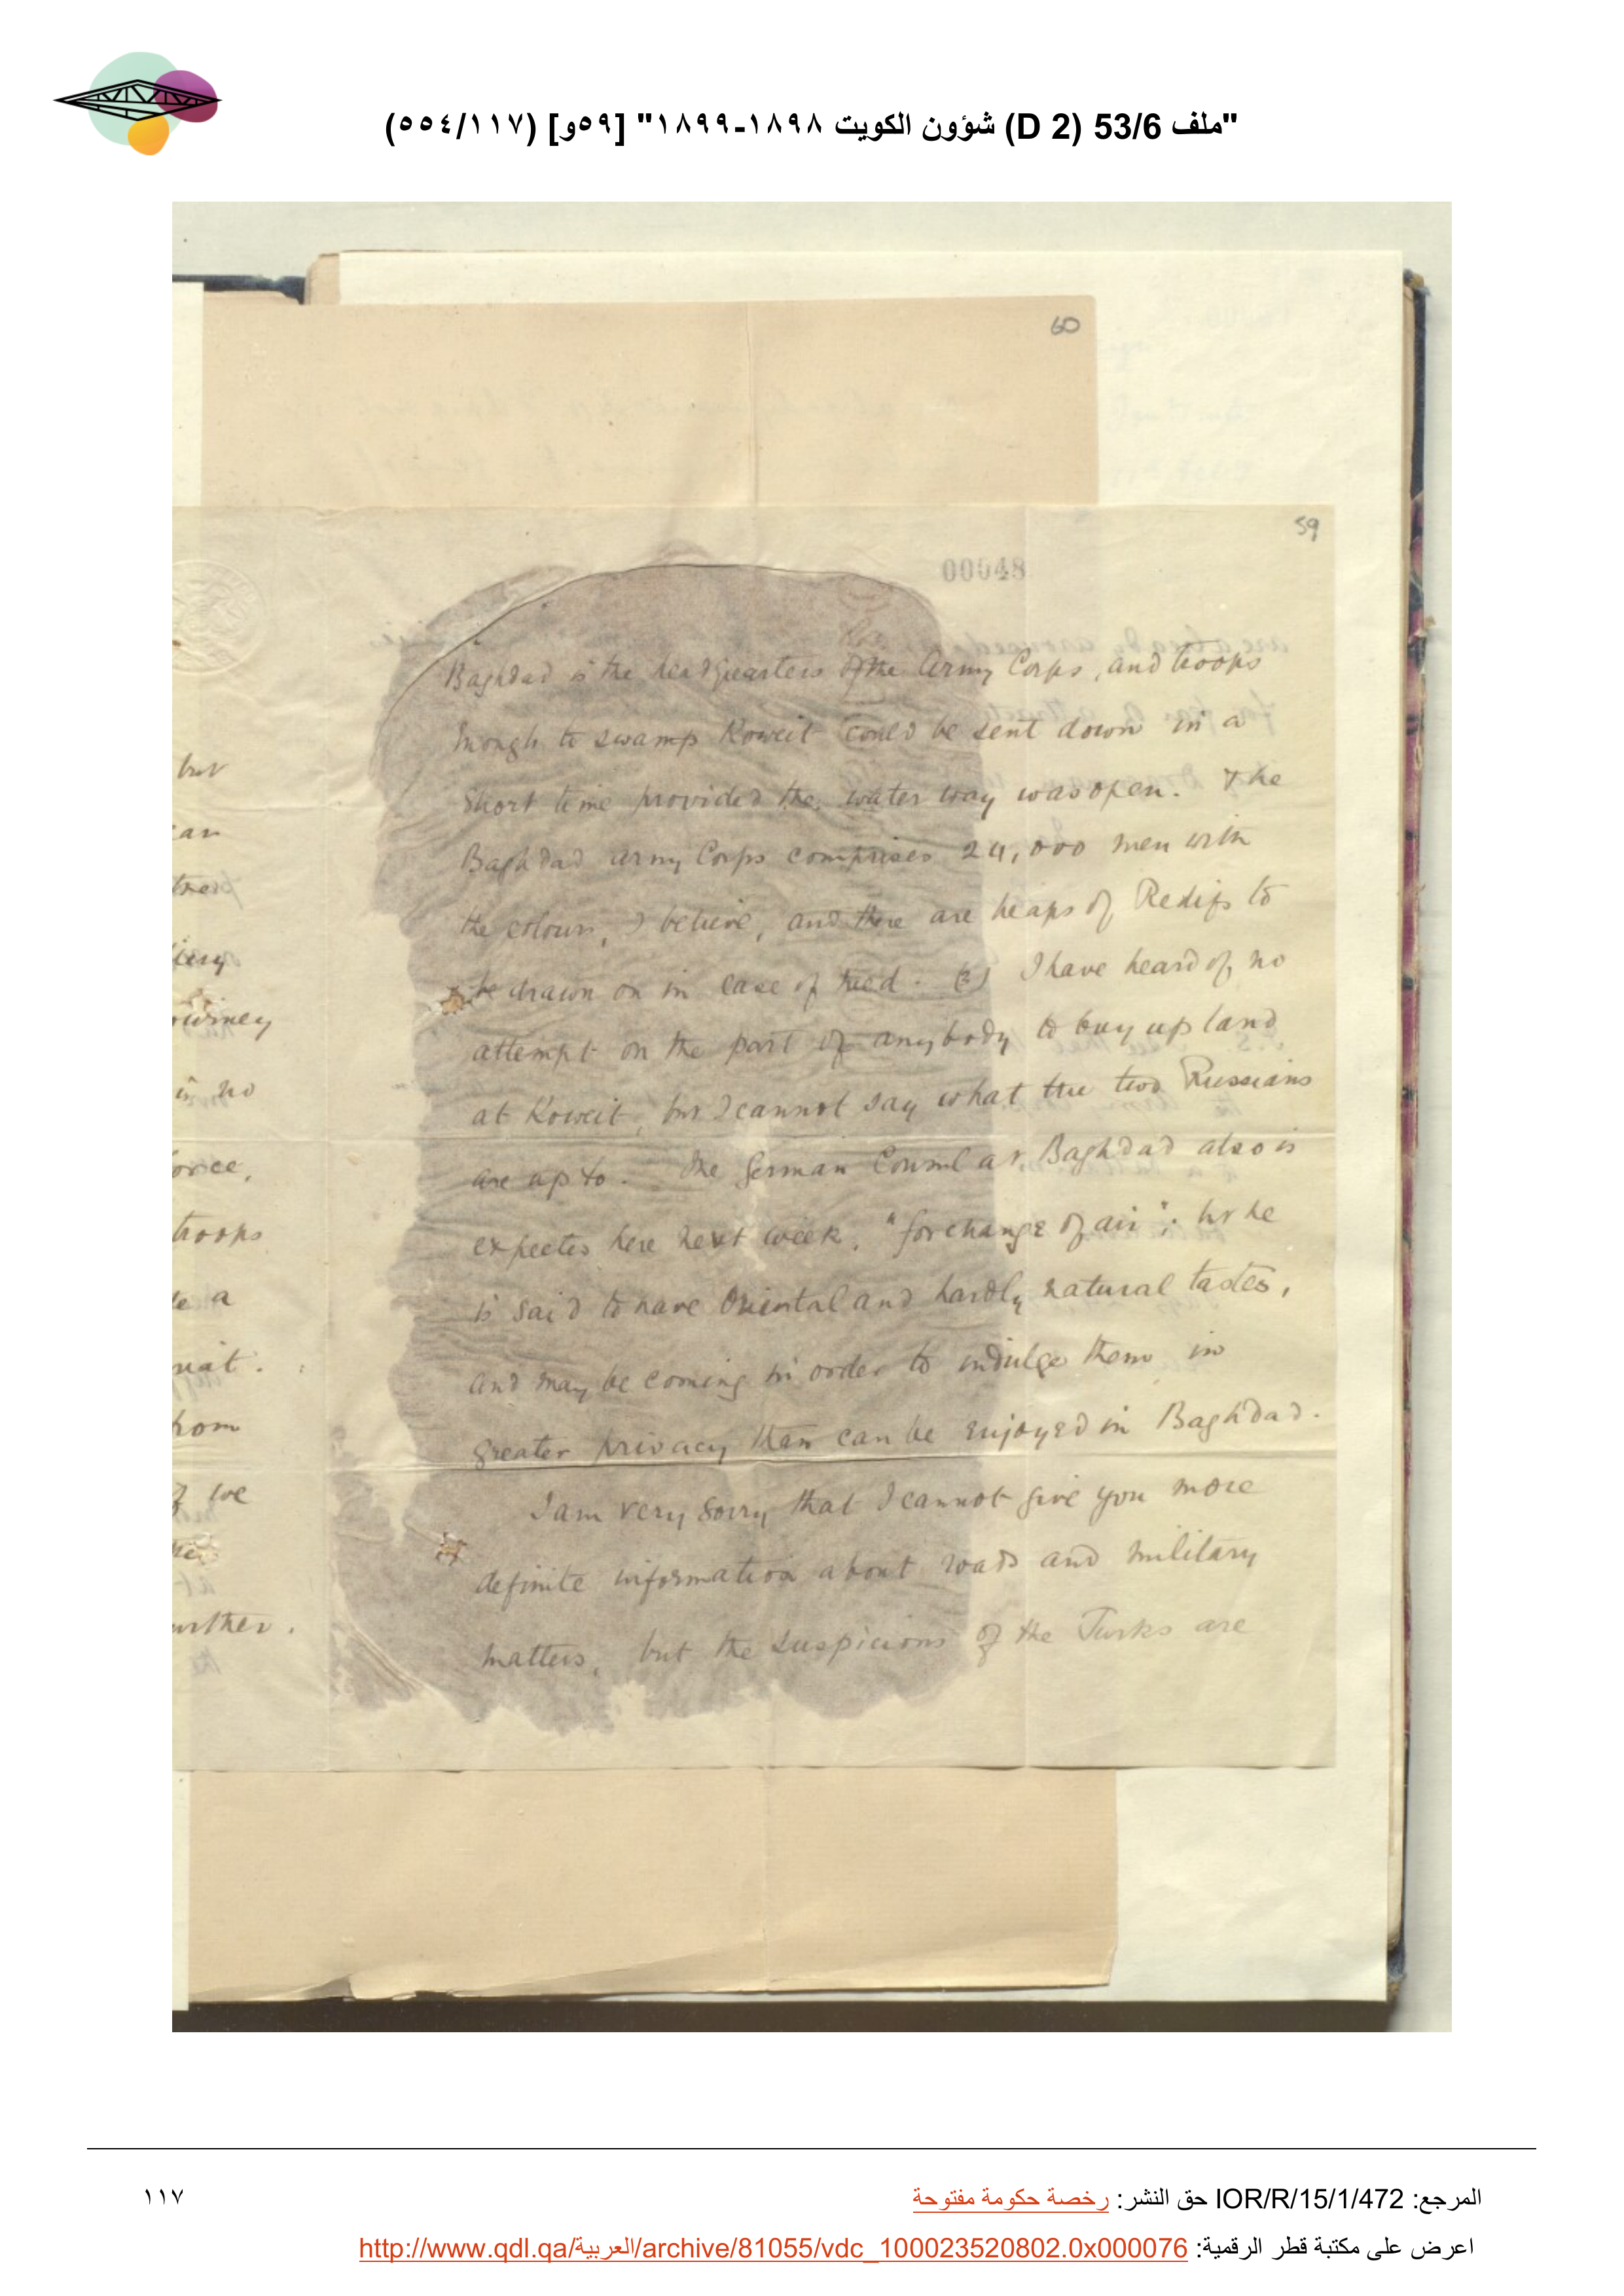 "ملف 53/6 (D 2) شؤون الكويت ١٨٩٨-١٨٩٩" [٥٩و] (٥٥٤/١١٧)
60
59
00048
Baghdad is the headquarters of the Army Corps, and troops
enough to swamp Koweit could be sent down in a
short time provided the water way was open. The
Baghdad Army Corps comprises 24,000 men with
the colours, I believe, and there are heaps of Redifs to
be drawn on in case of need. (3) I have heard of no
attempt on the part of anybody to buy up land
at Koweit, but I cannot say what the two Russians
are up to. The German Consul at Baghdad also is
expected here next week, "for change of air": but he
is said to have Oriental and hardly natural tastes,
and may be coming in order to indulge them in
greater privacy than can be enjoyed in Baghdad.
I am very sorry that I cannot give you more
definite information about roads and military
matters, but the suspicions of the Turks are
but
an
in no
troops
a
we
المرجع: IOR/R/15/1/472 حق النشر: رخصة حكومة مفتوحة
١١٧
اعرض على مكتبة قطر الرقمية: http://www.qdl.qa/العربية/archive/81055/vdc_100023520802.0x000076